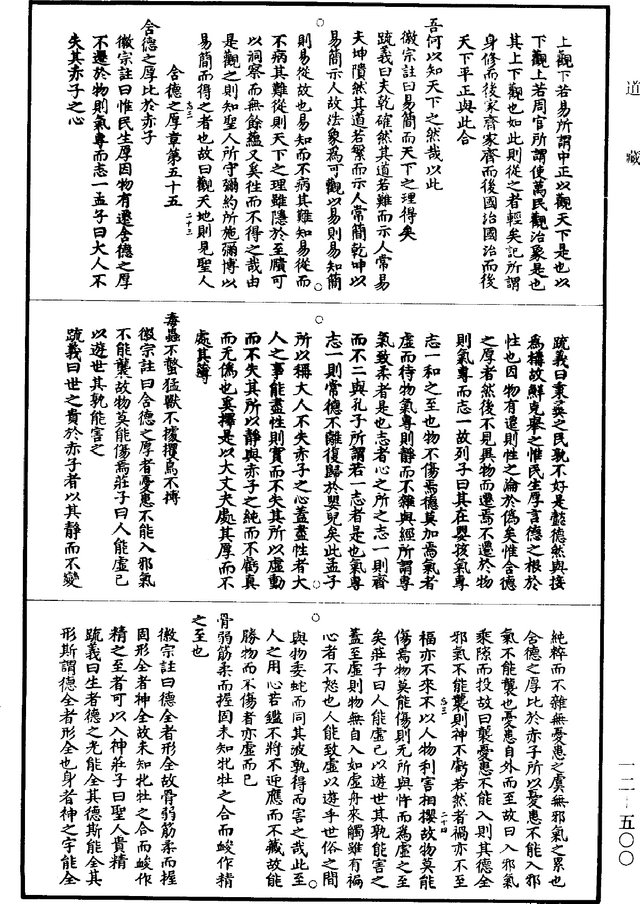 道藏
上觀下若易所謂中正以觀天下是也以
下觀上若周官所謂使萬民觀治象是也
其上下觀也如此則從之者輕矣記所謂
身修而後家齊家齊而後國治國治而後
天下平正與此合
吾何以知天下之然哉以此
徽宗註曰易簡而天下之理得矣
疏義曰夫乾確然其道若難而示人常易
夫坤隤然其道若繁而示人常簡乾坤以
易簡示人故法象為可觀以易則易知簡
則易從故也易知而不病其難知易從而
不病其難從則天下之理雖隱於至賾可
以洞察而無餘蘊又奚往而不得之哉由
是觀之則知聖人所守彌約所施彌博以
易簡而得之者也故曰觀天地則見聖人
含德之厚章第五十五
含德之厚比於赤子
徽宗註曰惟民生厚因物有遷含德之厚
不遷於物則氣專而志一孟子曰大人不
失其赤子之心
疏義曰秉彝之民孰不好是懿德然與接
為構故鮮克舉之惟民生厚言德之根於
性也因物有遷則性之淪於偽矣惟含德
之厚者然後不見異物而遷焉不遷於物
則氣專而志一故列子曰其在嬰孩氣專
志一和之至也物不傷焉德莫加焉氣者
虛而待物氣專則靜而不雜與經所謂專
氣致柔者是也志者心之所之志一則齊
而不二與孔子所謂若一志者是也氣專
志一則常德不離復歸於嬰兒矣此孟子
所以稱大人不失赤子之心蓋盡性者大
人之事能盡性則實而不失其所以虛動
而不失其所以靜與赤子之純而不虧真
而无偽也奚擇是以大丈夫處其厚而不
處其薄
毒蟲不螫猛獸不據攫鳥不搏
徽宗註曰含德之厚者憂患不能入邪氣
不能襲故物莫能傷焉莊子曰人能虛己
以遊世其孰能害之
疏義曰世之貴於赤子者以其靜而不變
純粹而不雜無憂患之虞無邪氣之累也
含德之厚比於赤子所以憂患不能入邪
氣不能襲也憂患自外而至故曰入邪氣
乘隙而投故曰襲憂患不能入則其德全
邪氣不能襲則神不虧若然者禍亦不至
福亦不來不以人物利害相攖故物莫能
傷焉物莫能傷則无所與忤而為虛之至
矣莊子曰人能虛己以遊世其孰能害之
蓋至虛則物無自入如虛舟來觸雖有褊
心者不怒也人能致虛以遊乎世俗之間
與物委蛇而同其波孰得而害之哉此至
人之用心若鑑不將不迎應而不藏故能
勝物而不傷者亦虛而已
骨弱筋柔而握固未知牝牡之合而峻作精
之至也
徽宗註曰德全者形全故骨弱筋柔而握
固形全者神全故未知牝牡之合而峻作
精之至者可以入神莊子曰聖人貴精
疏義曰生者德之光能全其德斯能全其
形斯謂德全者形全也身者神之宇能全
一二-五〇〇